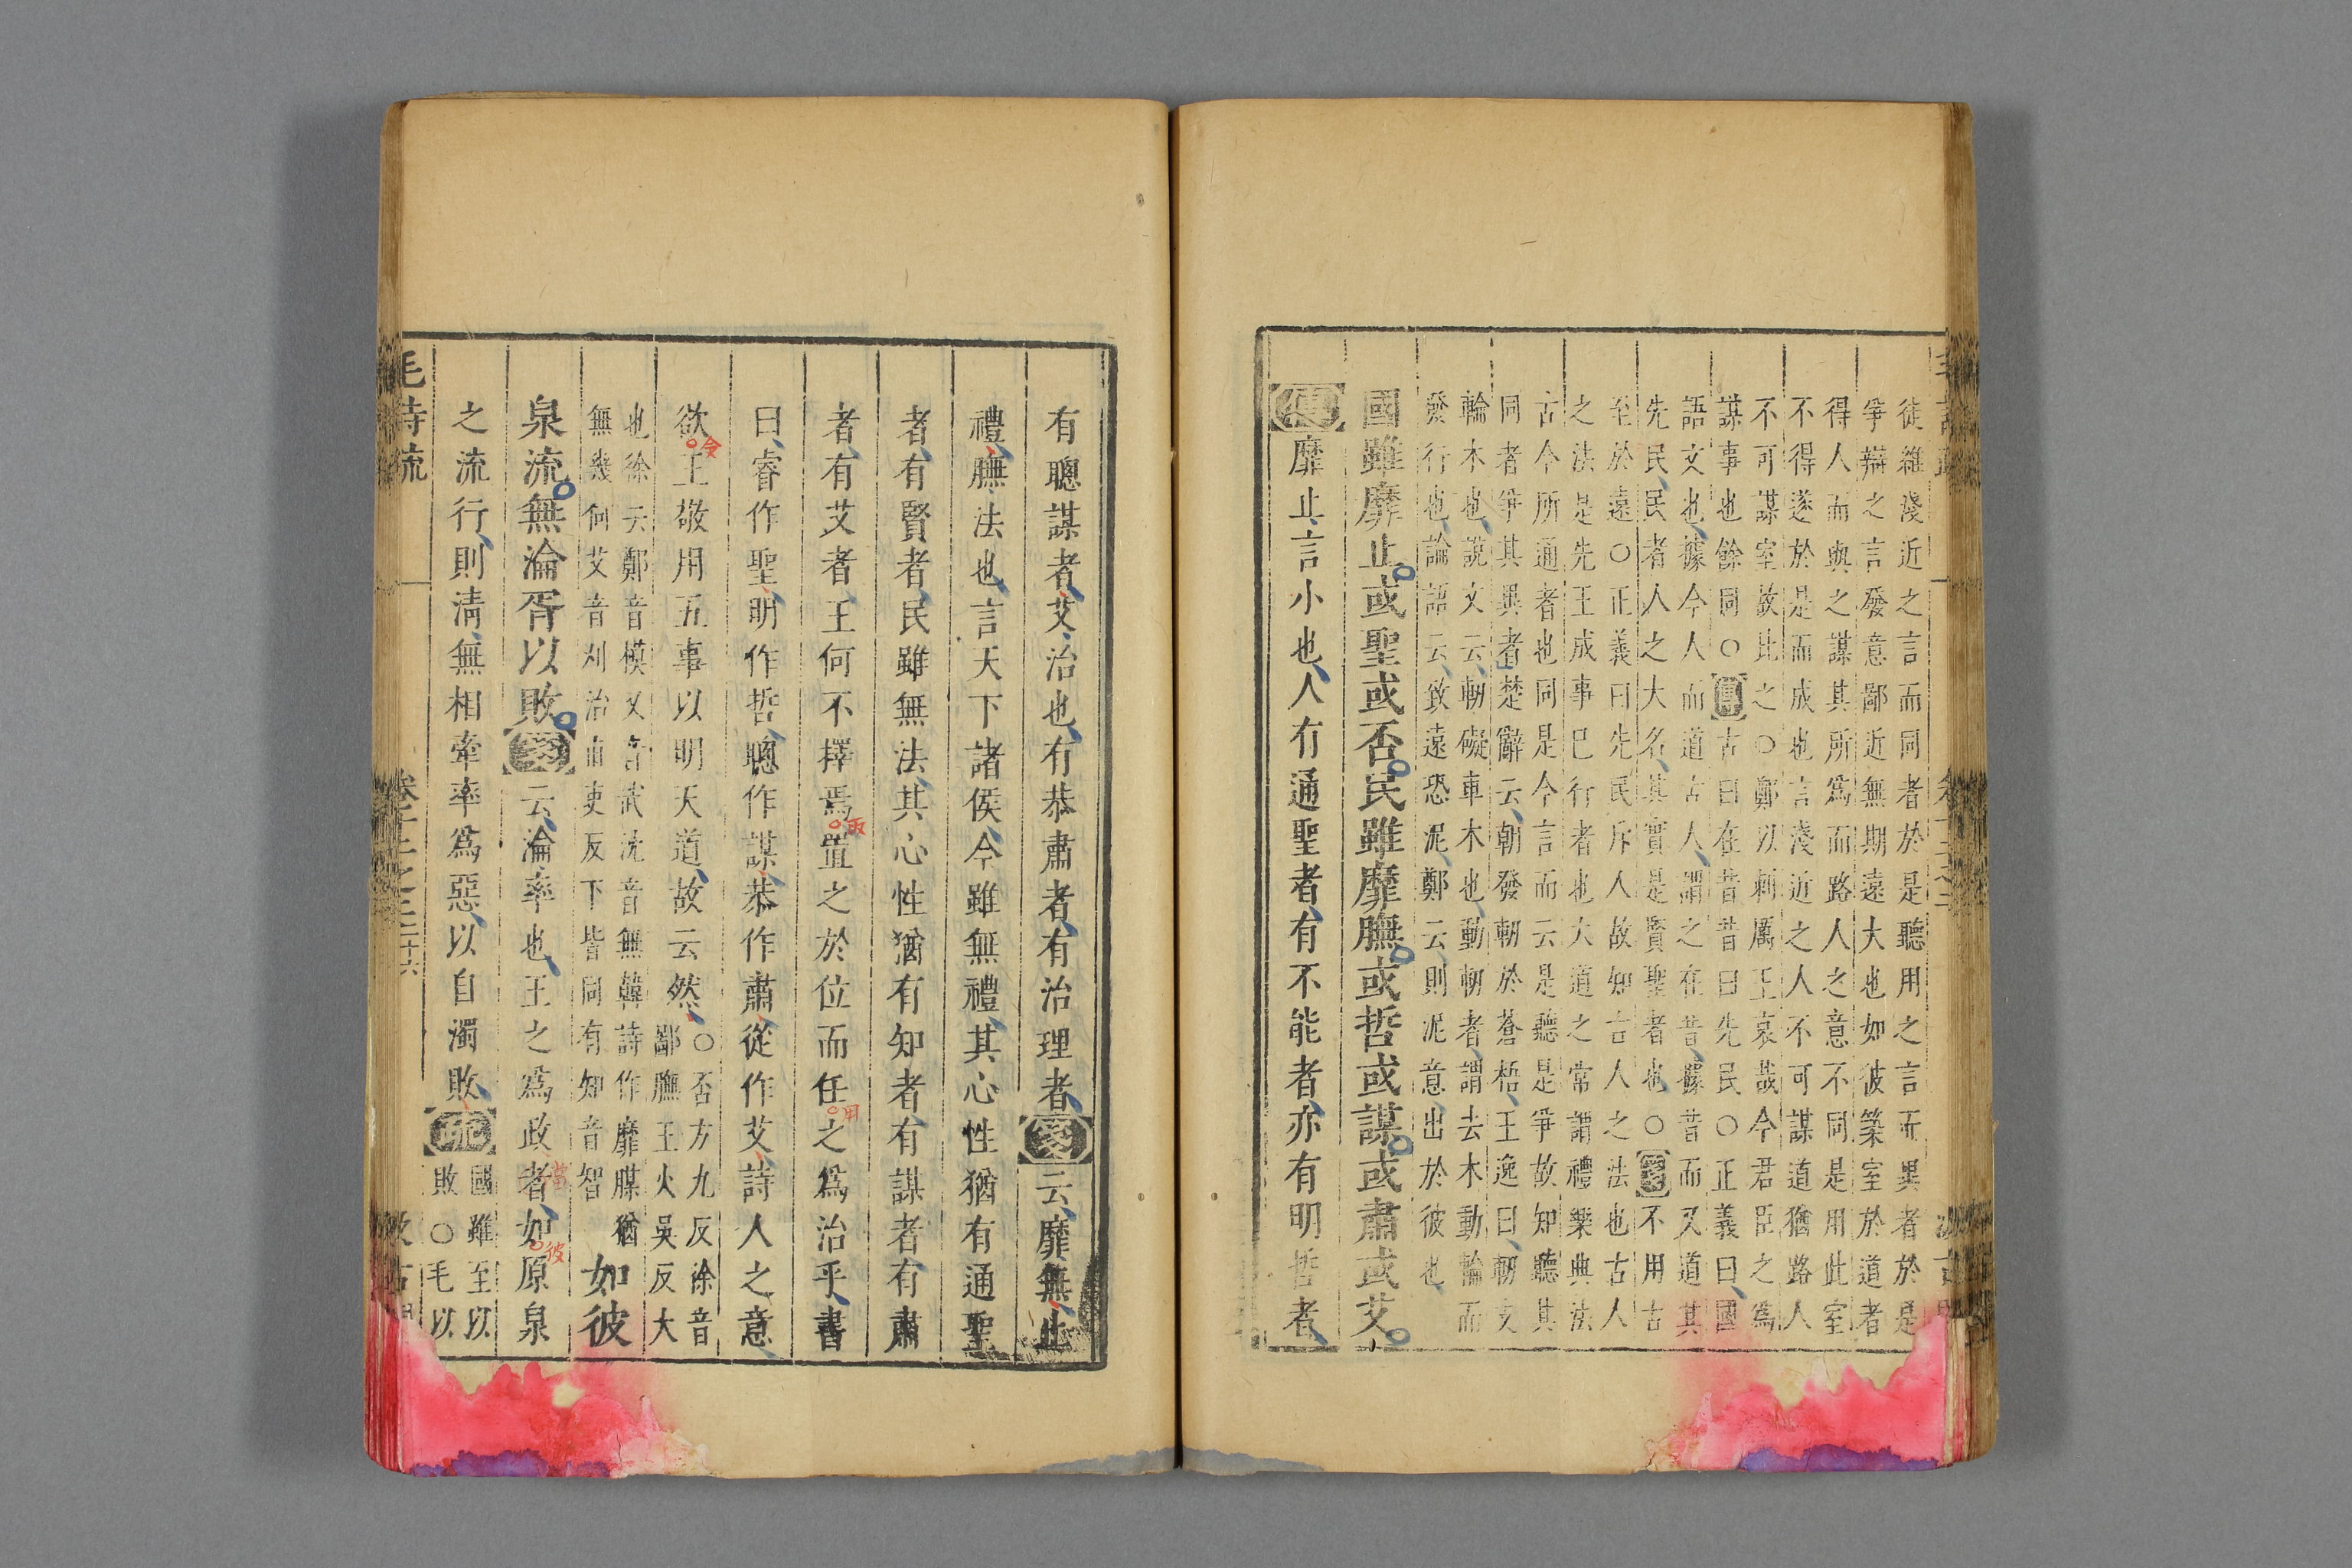 徒維淺近之言而同者於是聽用之言而異者於是
爭辯之言發意鄙近無期遠大也如彼築室於道者
得人而與之謀其所爲而路人之意不同是用此室
不得遂於是而成也言淺近之人不可謀道猶路人
不可謀室故比之○鄭以刺厲王哀哉今君臣之爲
謀事也餘同○傳古曰在昔昔曰先民○正義曰國
語文也據今人而道古人謂之在昔據昔而又道其
先民民者人之大名其實是賢聖者也○箋不用古
至於遠○正義曰先民斥人故知古人之法也古人
之法是先王成事已行者也大道之常謂禮樂典法
古今所通者也同是今言而云是聽是爭故知聽其
同者爭其異者楚辭云朝發軔於蒼梧王逸曰軔支
輪木也說文云軔礙車木也動軔者謂去木動輪而
發行也論語云致遠恐泥鄭云則泥意出於彼也
國雖靡止或聖或否民雖靡膴或哲或謀或肅或艾
傳靡止言小也人有通聖者有不能者亦有明哲者
有聰謀者艾治也有恭肅者有治理者箋云靡無止
禮膴法也言天下諸侯今雖無禮其心性猶有通聖
者有賢者民雖無法其心性猶有知者有謀者有肅
者有艾者王何不擇焉置之於位而任之爲治乎書
曰睿作聖明作哲聰作謀恭作肅從作艾詩人之意
欲王敬用五事以明天道故云然○否方九反徐音
鄙膴王火吳反大
也徐云鄭音模又音武沈音無韓詩作靡腜猶
無幾何艾音刈治也下皆同有知音智
如彼
泉流無淪胥以敗箋云淪率也王之爲政者如原泉
之流行則清無相牽率爲惡以自濁敗疏國雖至以
敗○毛以
毛詩疏
卷十二之二
十六